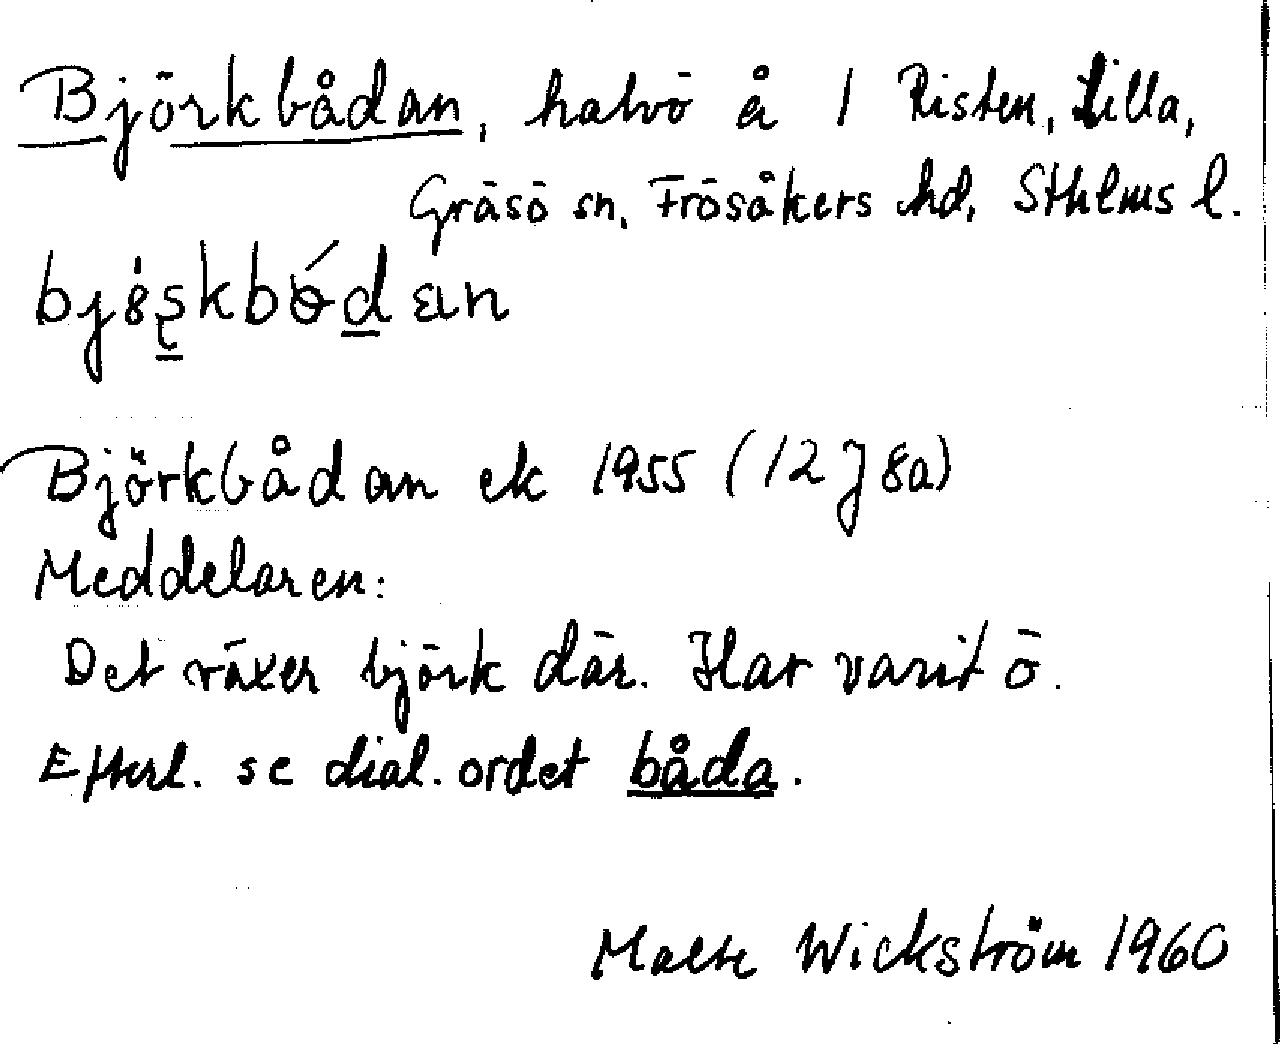 Björkbådan, halvö å 1 Risten, Lilla,
Gräsö sn, Frösåkers hd, Sthlms l.
Björkbådan ek 1955 (12 J 8a)
Meddelaren:
Det växer björk där. Har varit ö.
Efterl. se dial. ordet båda.
Malte Wickström 1960